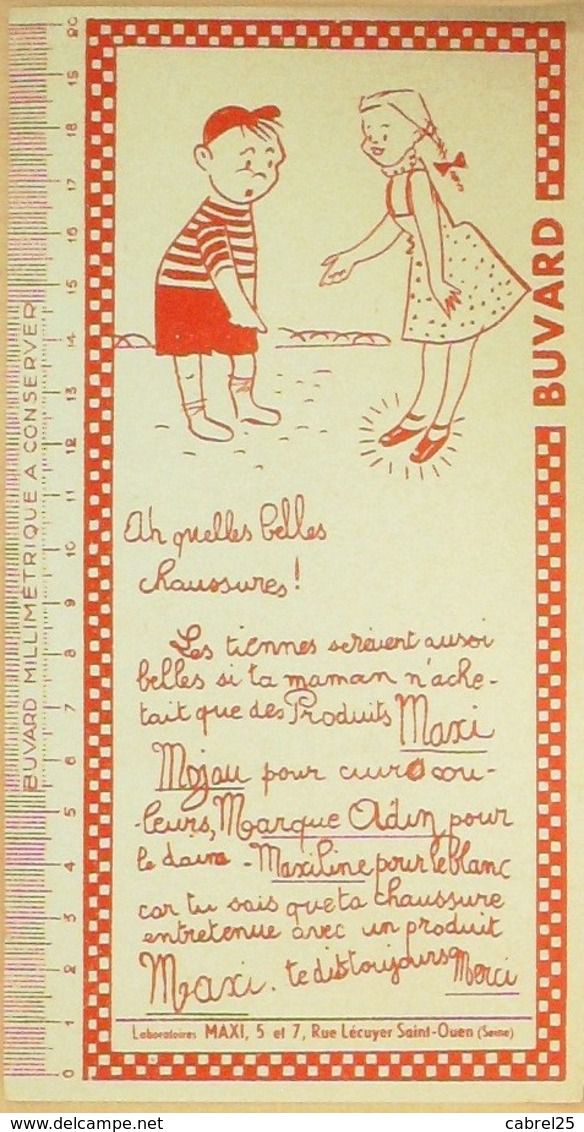 BUVARD MILLIMÉTRIQUE A CONSERVER
20
19
18
17
16
15
14
13
12
11
10
9
8
7
6
5
4
3
2
1
0
BUVARD
Ah quelles belles
chaussures!
Les tiennes seraient aussi
belles si ta maman n'ache-
tait que des Produits Maxi
Mojau pour cuirs cou-
leurs, Marque Adin pour
le daim - Maxiline pour le blanc
car tu sais que ta chaussure
entretenue avec un produit
Maxi. te dit toujours Merci
Laboratoires MAXI, 5 et 7, Rue Lécuyer Saint-Ouen (Seine)
cabrel25